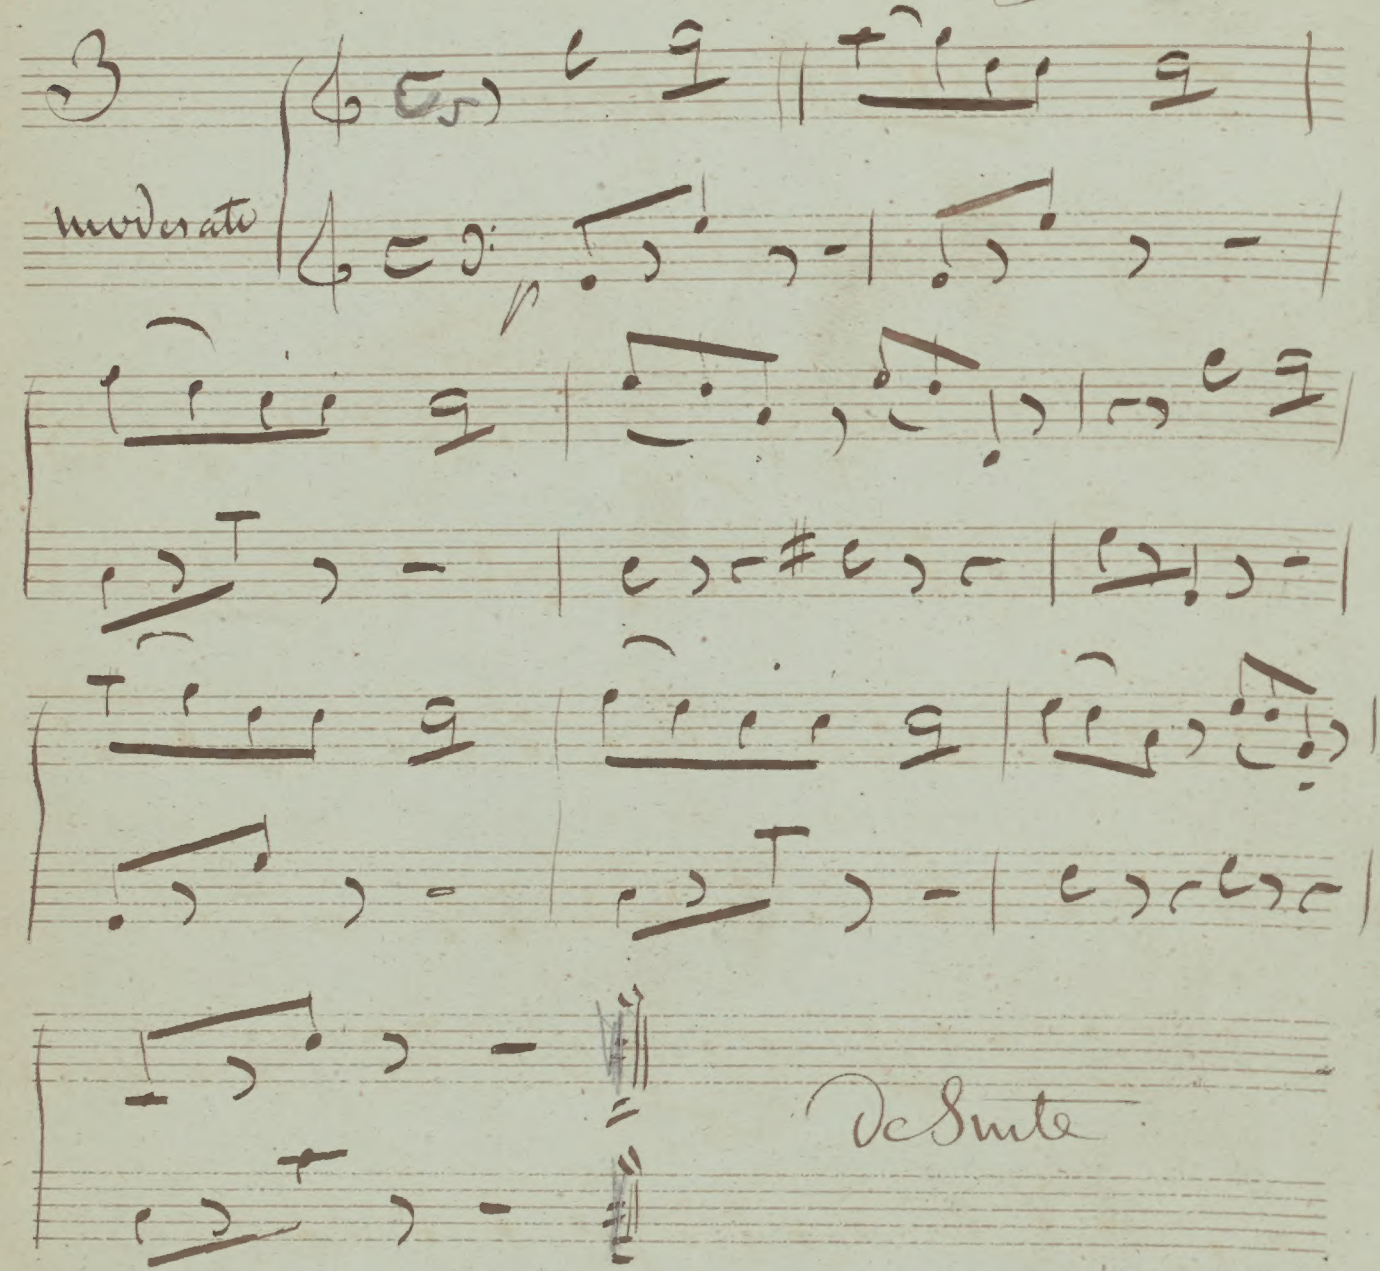 3
moderato
p
De Suite